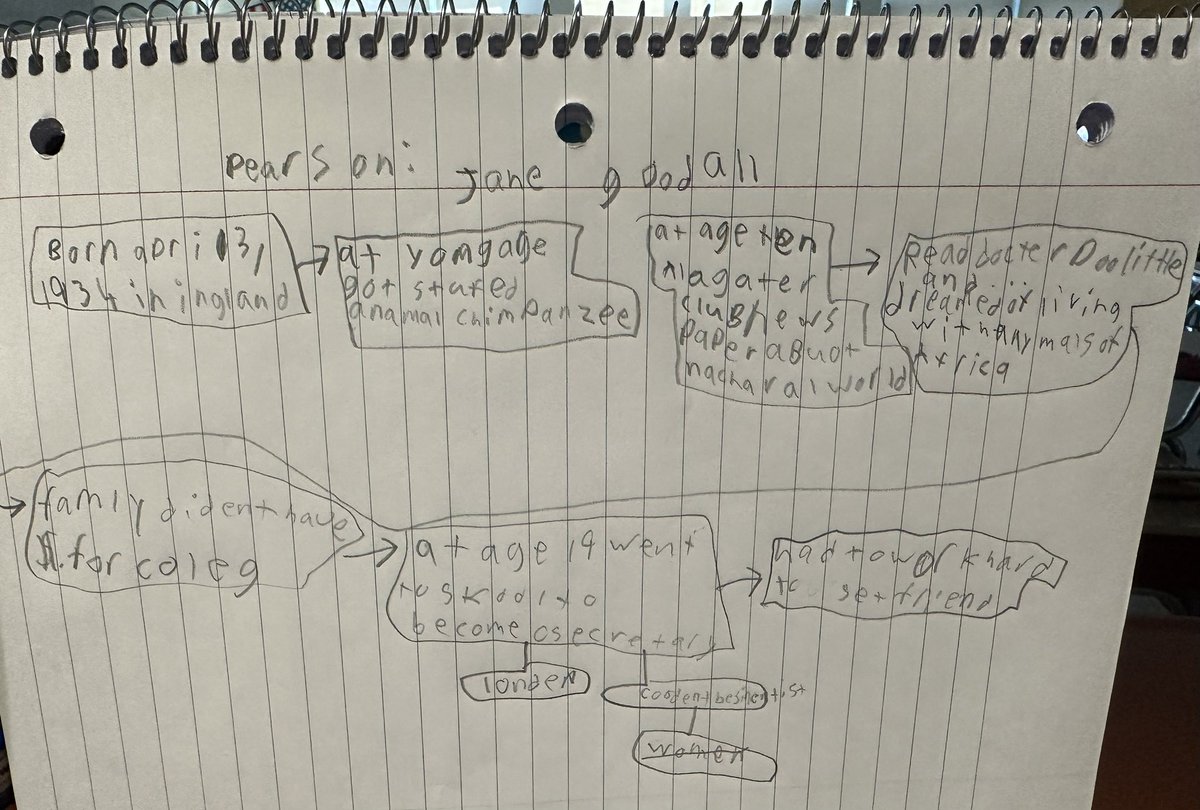 pearson: Jane goodall
Born april 3,
1934 in ingland
at yomgage
got stufed
anamal chimpanzee
at age ten
club news
paper abuot
nacharal world
Read docter Doolittle
and
dreamed of living
with anymals of
Africa
famly dident have
$ for coleg
at age 19 went
to skool to
become a secretary
had to work hard
to set friend
londen
coodent be sientist
women